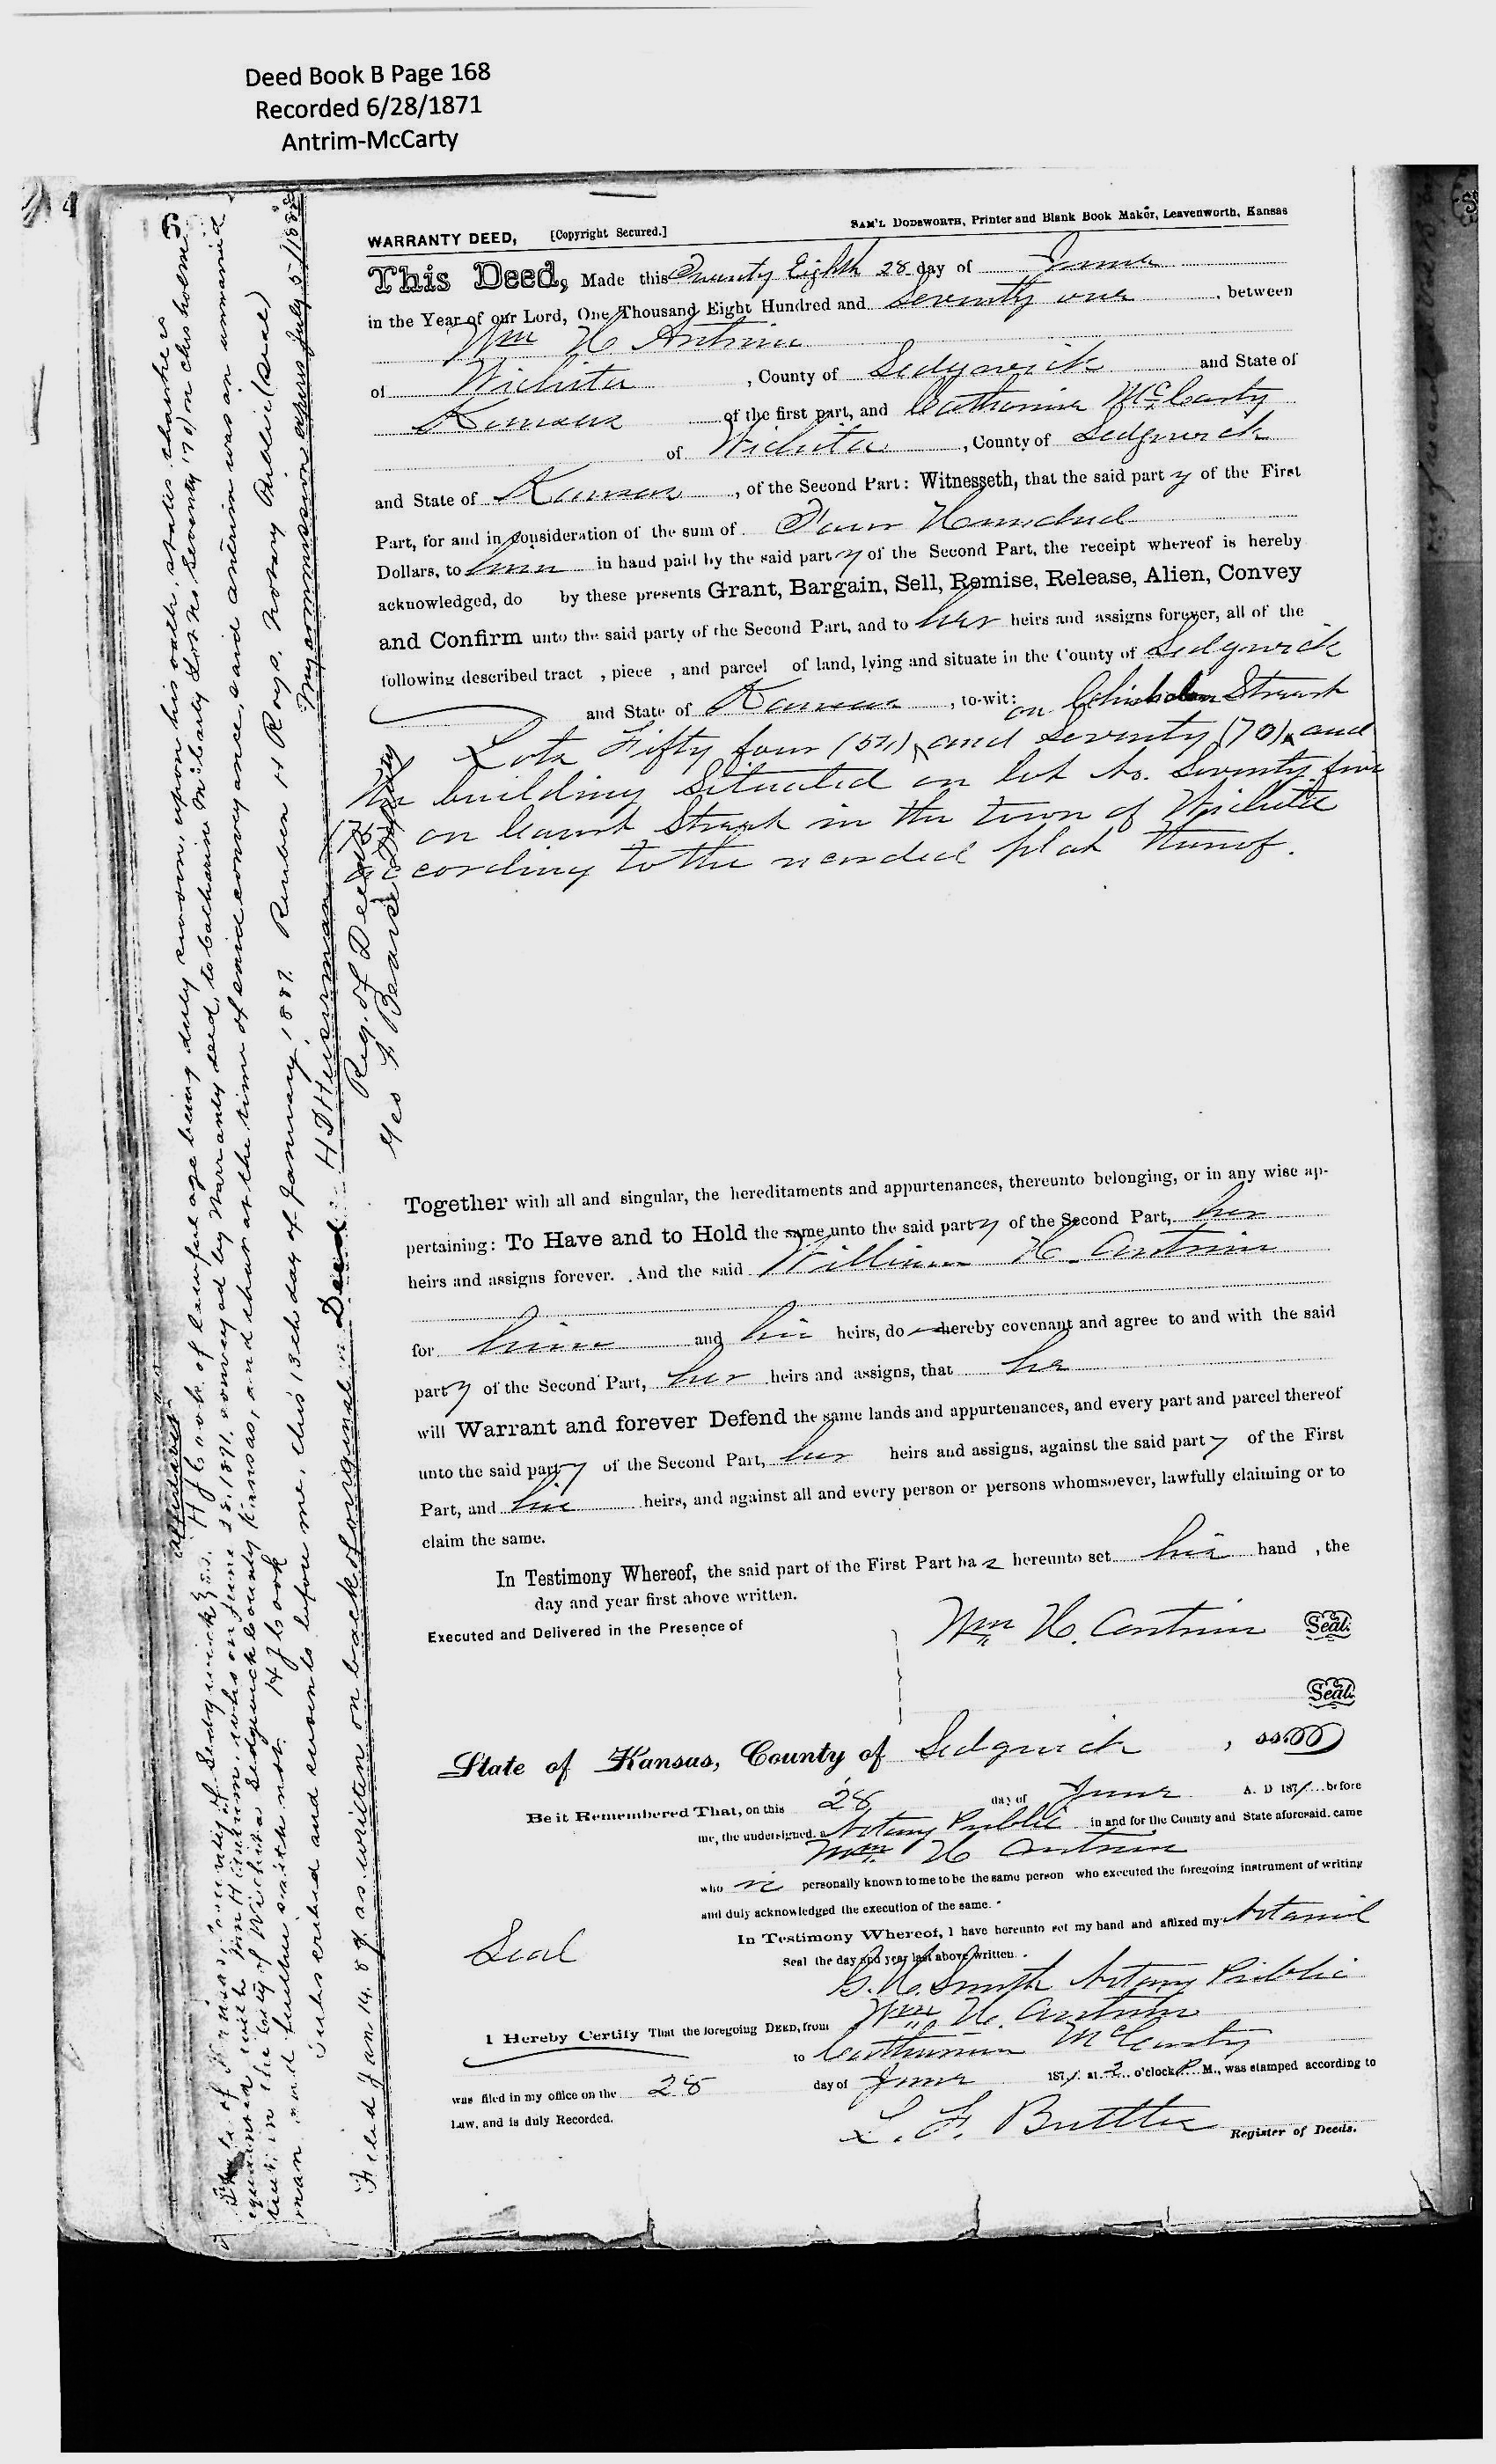 Deed Book B Page 168
Recorded 6/28/1871
Antrim-McCarty
WARRANTY DEED, [Copyright Secured.] SAM'L DODSWORTH, Printer and Blank Book Maker, Leavenworth, Kansas
This Deed, Made this Twenty Eighth 28 day of June
in the Year of our Lord, One Thousand Eight Hundred and Seventy one, between
Wm H Antrim
of Wichita, County of Sedgwick and State of
Kansas of the first part, and Catharine McCarty
of Wichita, County of Sedgwick
and State of Kansas, of the Second Part: Witnesseth, that the said party of the First
Part, for and in consideration of the sum of Four Hundred
Dollars, to him in hand paid by the said party of the Second Part, the receipt whereof is hereby
acknowledged, do by these presents Grant, Bargain, Sell, Remise, Release, Alien, Convey
and Confirm unto the said party of the Second Part, and to her heirs and assigns forever, all of the
following described tract , piece , and parcel of land, lying and situate in the County of Sedgwick
and State of Kansas, to-wit:
on Chisholm Street
Lots Fifty four (54) and Seventy (70) and
the building Situated on lot No. Seventy five
(75) on Court Street in the town of Wichita
according to the recorded plat thereof.
Together with all and singular, the hereditaments and appurtenances, thereunto belonging, or in any wise ap-
pertaining: To Have and to Hold the same unto the said party of the Second Part, her
heirs and assigns forever. And the said William H. Antrim
for him and his heirs, do hereby covenant and agree to and with the said
party of the Second Part, her heirs and assigns, that he
will Warrant and forever Defend the same lands and appurtenances, and every part and parcel thereof
unto the said party of the Second Part, her heirs and assigns, against the said party of the First
Part, and his heirs, and against all and every person or persons whomsoever, lawfully claiming or to
claim the same.
In Testimony Whereof, the said part of the First Part has hereunto set his hand , the
day and year first above written.
Executed and Delivered in the Presence of
Wm H. Antrim Seal.
Seal.
State of Kansas, County of Sedgwick, ss
Be it Remembered That, on this 28 day of June A. D 1871 before
me, the undersigned, a Notary Public in and for the County and State aforesaid, came
Wm H Antrim
who is personally known to me to be the same person who executed the foregoing instrument of writing
and duly acknowledged the execution of the same.
In Testimony Whereof, I have hereunto set my hand and affixed my Notarial
Seal Seal the day and year last above written.
Smith Notary Public
I Hereby Certify That the foregoing DEED, from Wm H. Antrim
to Catharine McCarty
was filed in my office on the 28 day of June 1871 at 2 o'clock P M., was stamped according to
Law, and is duly Recorded.
Register of Deeds.
Affidavit
State of Kansas, County of Sedgwick } ss. H J Cook of lawful age being duly sworn, upon his oath, states that he is
acquainted with Wm H Antrim, who on June 28, 1871, conveyed by Warranty deed, to Catharine McCarty Lot No. Seventy (70) on Chisholm
Street, in the City of Wichita Sedgwick County Kansas, and that at the time of said conveyance, said Antrim was an unmarried
man and further saith not. H J Cook
Subscribed and sworn to before me, this 13th day of January, 1887. Reuben H Roys, Notary Public (Seal)
My commission expires July 5/188
Filed Jan 14. 87 as written on back of original Deed H D Heiserman
Reg. of Deeds
Deputy